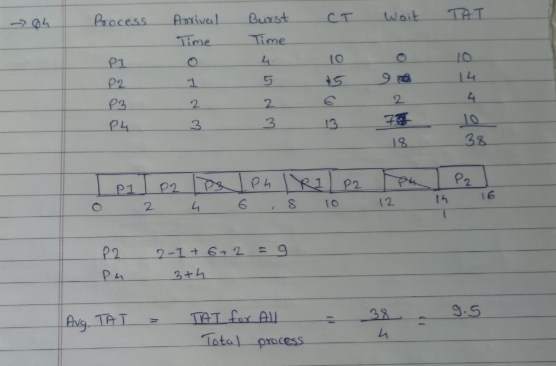 → Q4 Process Arrival Time Burst Time CT Wait TAT
P1 0 4 10 0 10
P2 1 5 15 9 14
P3 2 2 6 2 4
P4 3 3 13 7 10
18 38
P1 P2 P3 P4 P1 P2 P4 P2
0 2 4 6 8 10 12 14 16
1
P2 2-1+6+2 = 9
P4 3+4
Avg. TAT = TAT for All / Total process = 38 / 4 = 9.5